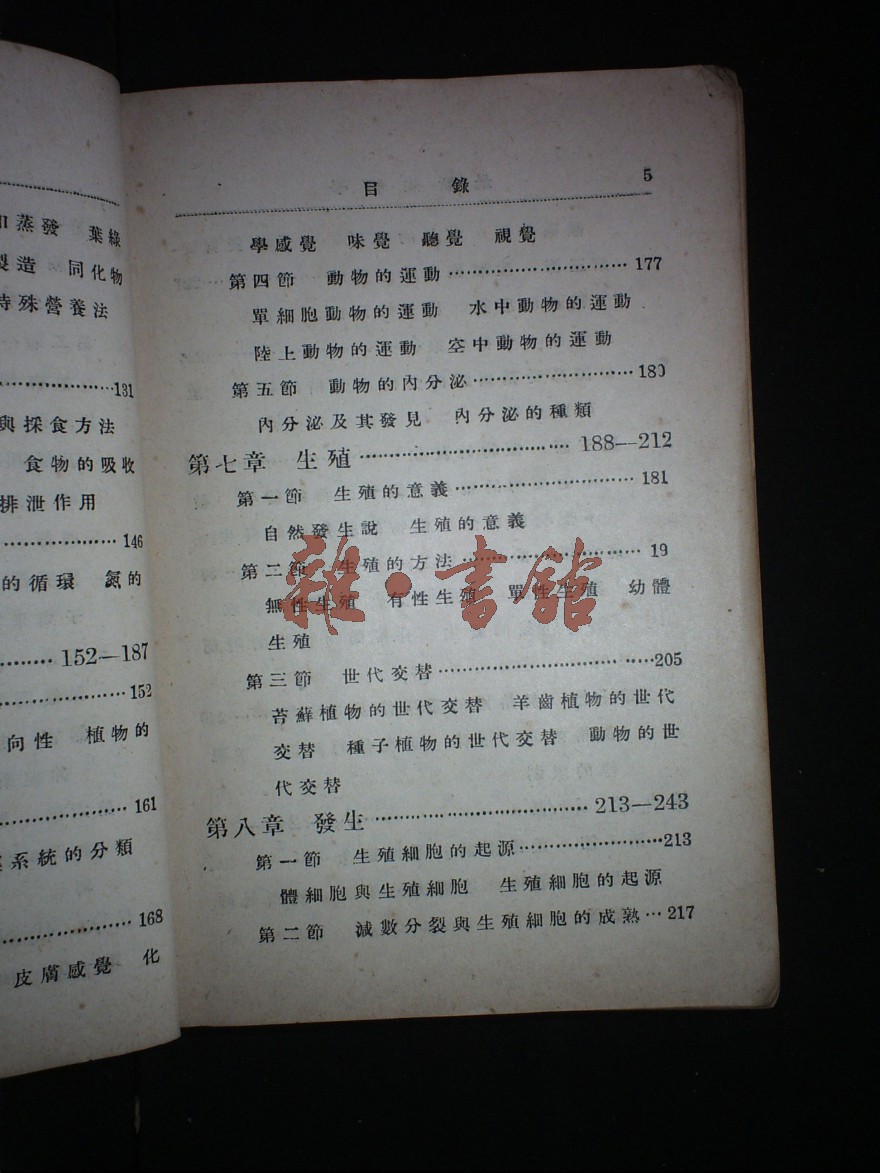 和蒸發　葉綠
製造　同化物
特殊營養法
……131
與採食方法
食物的吸收
排泄作用
……146
的循環　氮的
……152—187
……152
向性　植物的
……161
系統的分類
……168
皮膚感覺　化
目　錄　5
學感覺　味覺　聽覺　視覺
第四節　動物的運動……177
單細胞動物的運動　水中動物的運動
陸上動物的運動　空中動物的運動
第五節　動物的內分泌……180
內分泌及其發見　內分泌的種類
第七章　生殖……188—212
第一節　生殖的意義……181
自然發生說　生殖的意義
第二節　生殖的方法……19
無性生殖　有性生殖　單性生殖　幼體
生殖
第三節　世代交替……205
苔蘚植物的世代交替　羊齒植物的世代
交替　種子植物的世代交替　動物的世
代交替
第八章　發生……213—243
第一節　生殖細胞的起源……213
體細胞與生殖細胞　生殖細胞的起源
第二節　減數分裂與生殖細胞的成熟…217
雜·書館